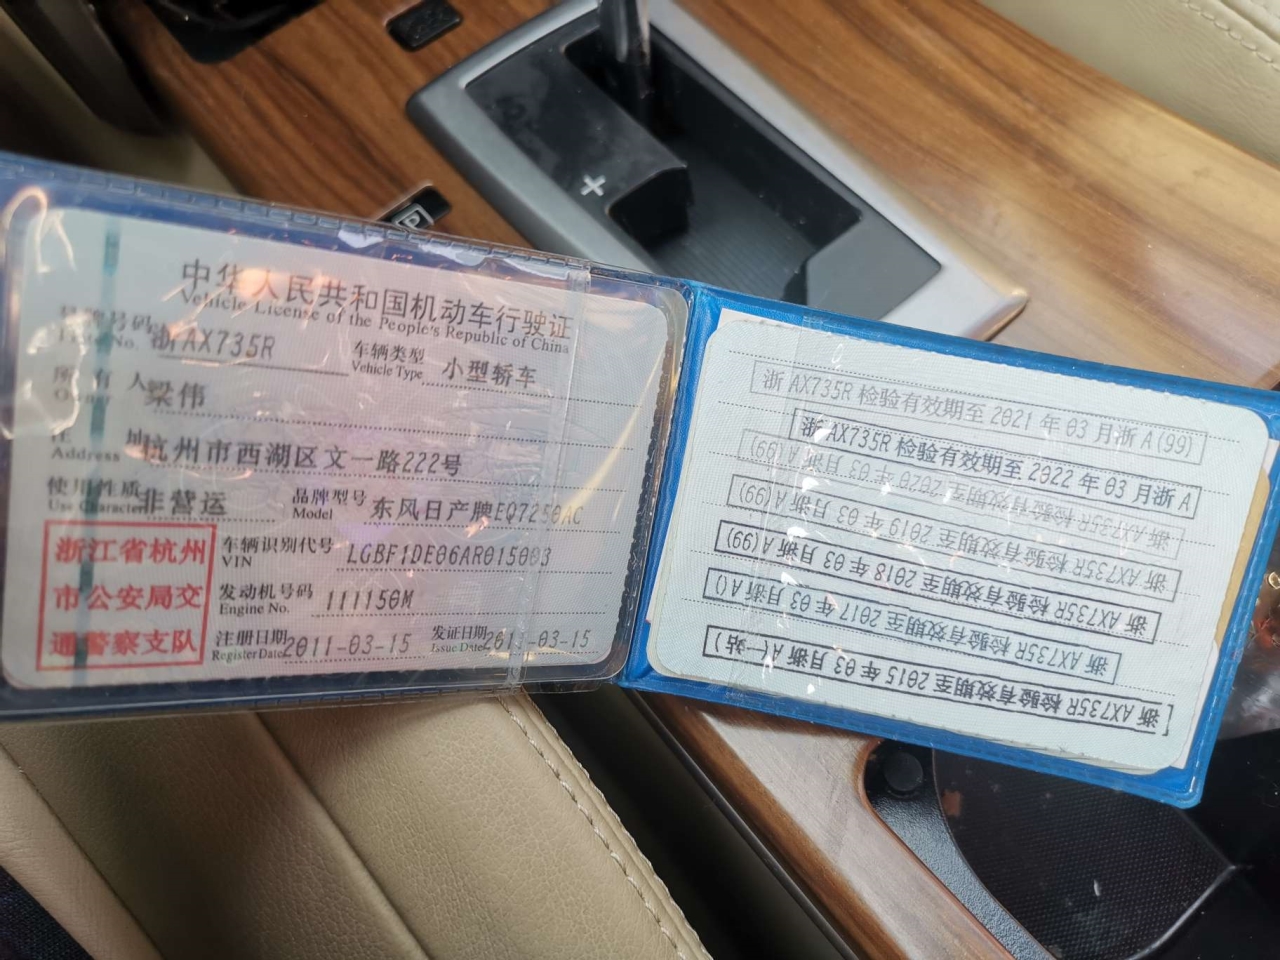 中华人民共和国机动车行驶证
Vehicle License of the People's Republic of China
号牌号码 浙AX735R 车辆类型 小型轿车
Plate No. Vehicle Type
所有人 梁伟
Owner
住址 杭州市西湖区文一路222号
Address
使用性质 非营运 品牌型号 东风日产牌EQ7250AC
Use Character Model
浙江省杭州
市公安局交
通警察支队
车辆识别代号 LGBF1DE06AR015003
VIN
发动机号码 111150M
Engine No.
注册日期 2011-03-15 发证日期 2011-03-15
Register Date Issue Date
浙AX735R 检验有效期至 2021 年 03 月浙A(99)
浙AX735R 检验有效期至 2022 年 03 月浙A
浙AX735R 检验有效期至 2020 年 03 月浙A(99)
浙AX735R 检验有效期至 2019 年 03 月浙A(99)
浙AX735R 检验有效期至 2018 年 03 月浙A(99)
浙AX735R 检验有效期至 2017 年 03 月浙A()
浙AX735R 检验有效期至 2015 年 03 月浙A(一站)
P
+